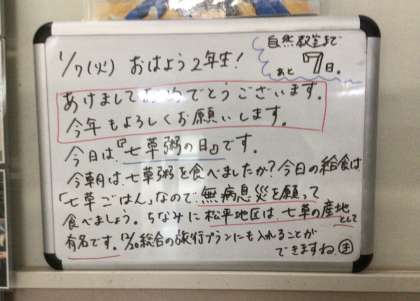 1/7(火) おはよう2年生!
自然教室まで
あと 7日。
あけましておめでとうございます。
今年もよろしくお願いします。
今日は『七草粥の日』です。
今朝は七草粥を食べましたか?今日の給食は
「七草ごはん」なので無病息災を願って
食べましょう。ちなみに松平地区は七草の産地として
有名です。12/20総合の旅行プランにも入れることが
できますね